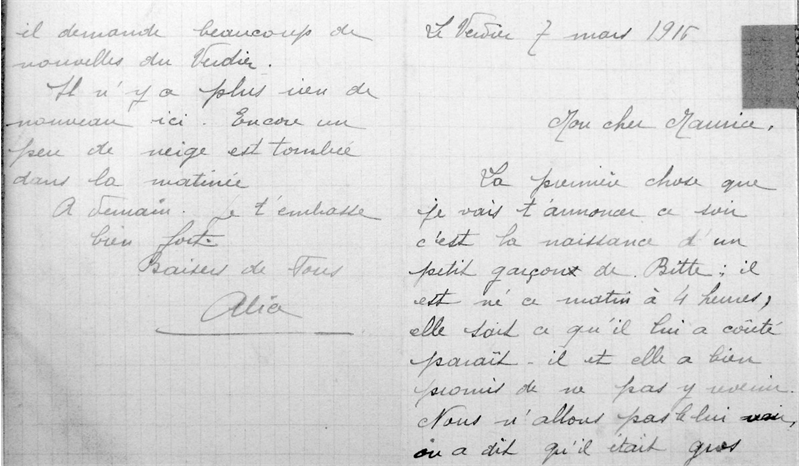 il demande beaucoup de
nouvelles du Verdier.
Il n'y a plus rien de
nouveau ici. Encore un
peu de neige est tombée
dans la matinée
A demain. Je t'embrasse
bien fort.
Baisers de Tous
Alia
Le Verdier 7 mars 1916
Mon cher Maurice,
La première chose que
je vais t'annoncer ce soir
c'est la naissance d'un
petit garçon de Bitte; il
est né ce matin à 4 heures,
elle sait ce qu'il lui a coûté
paraît-il et elle a bien
promis de ne pas y revenir.
Nous n'allons pas le lui
on a dit qu'il était gros